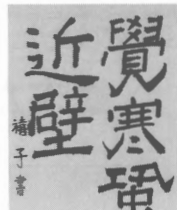 覺寒蛩
近壁
子書